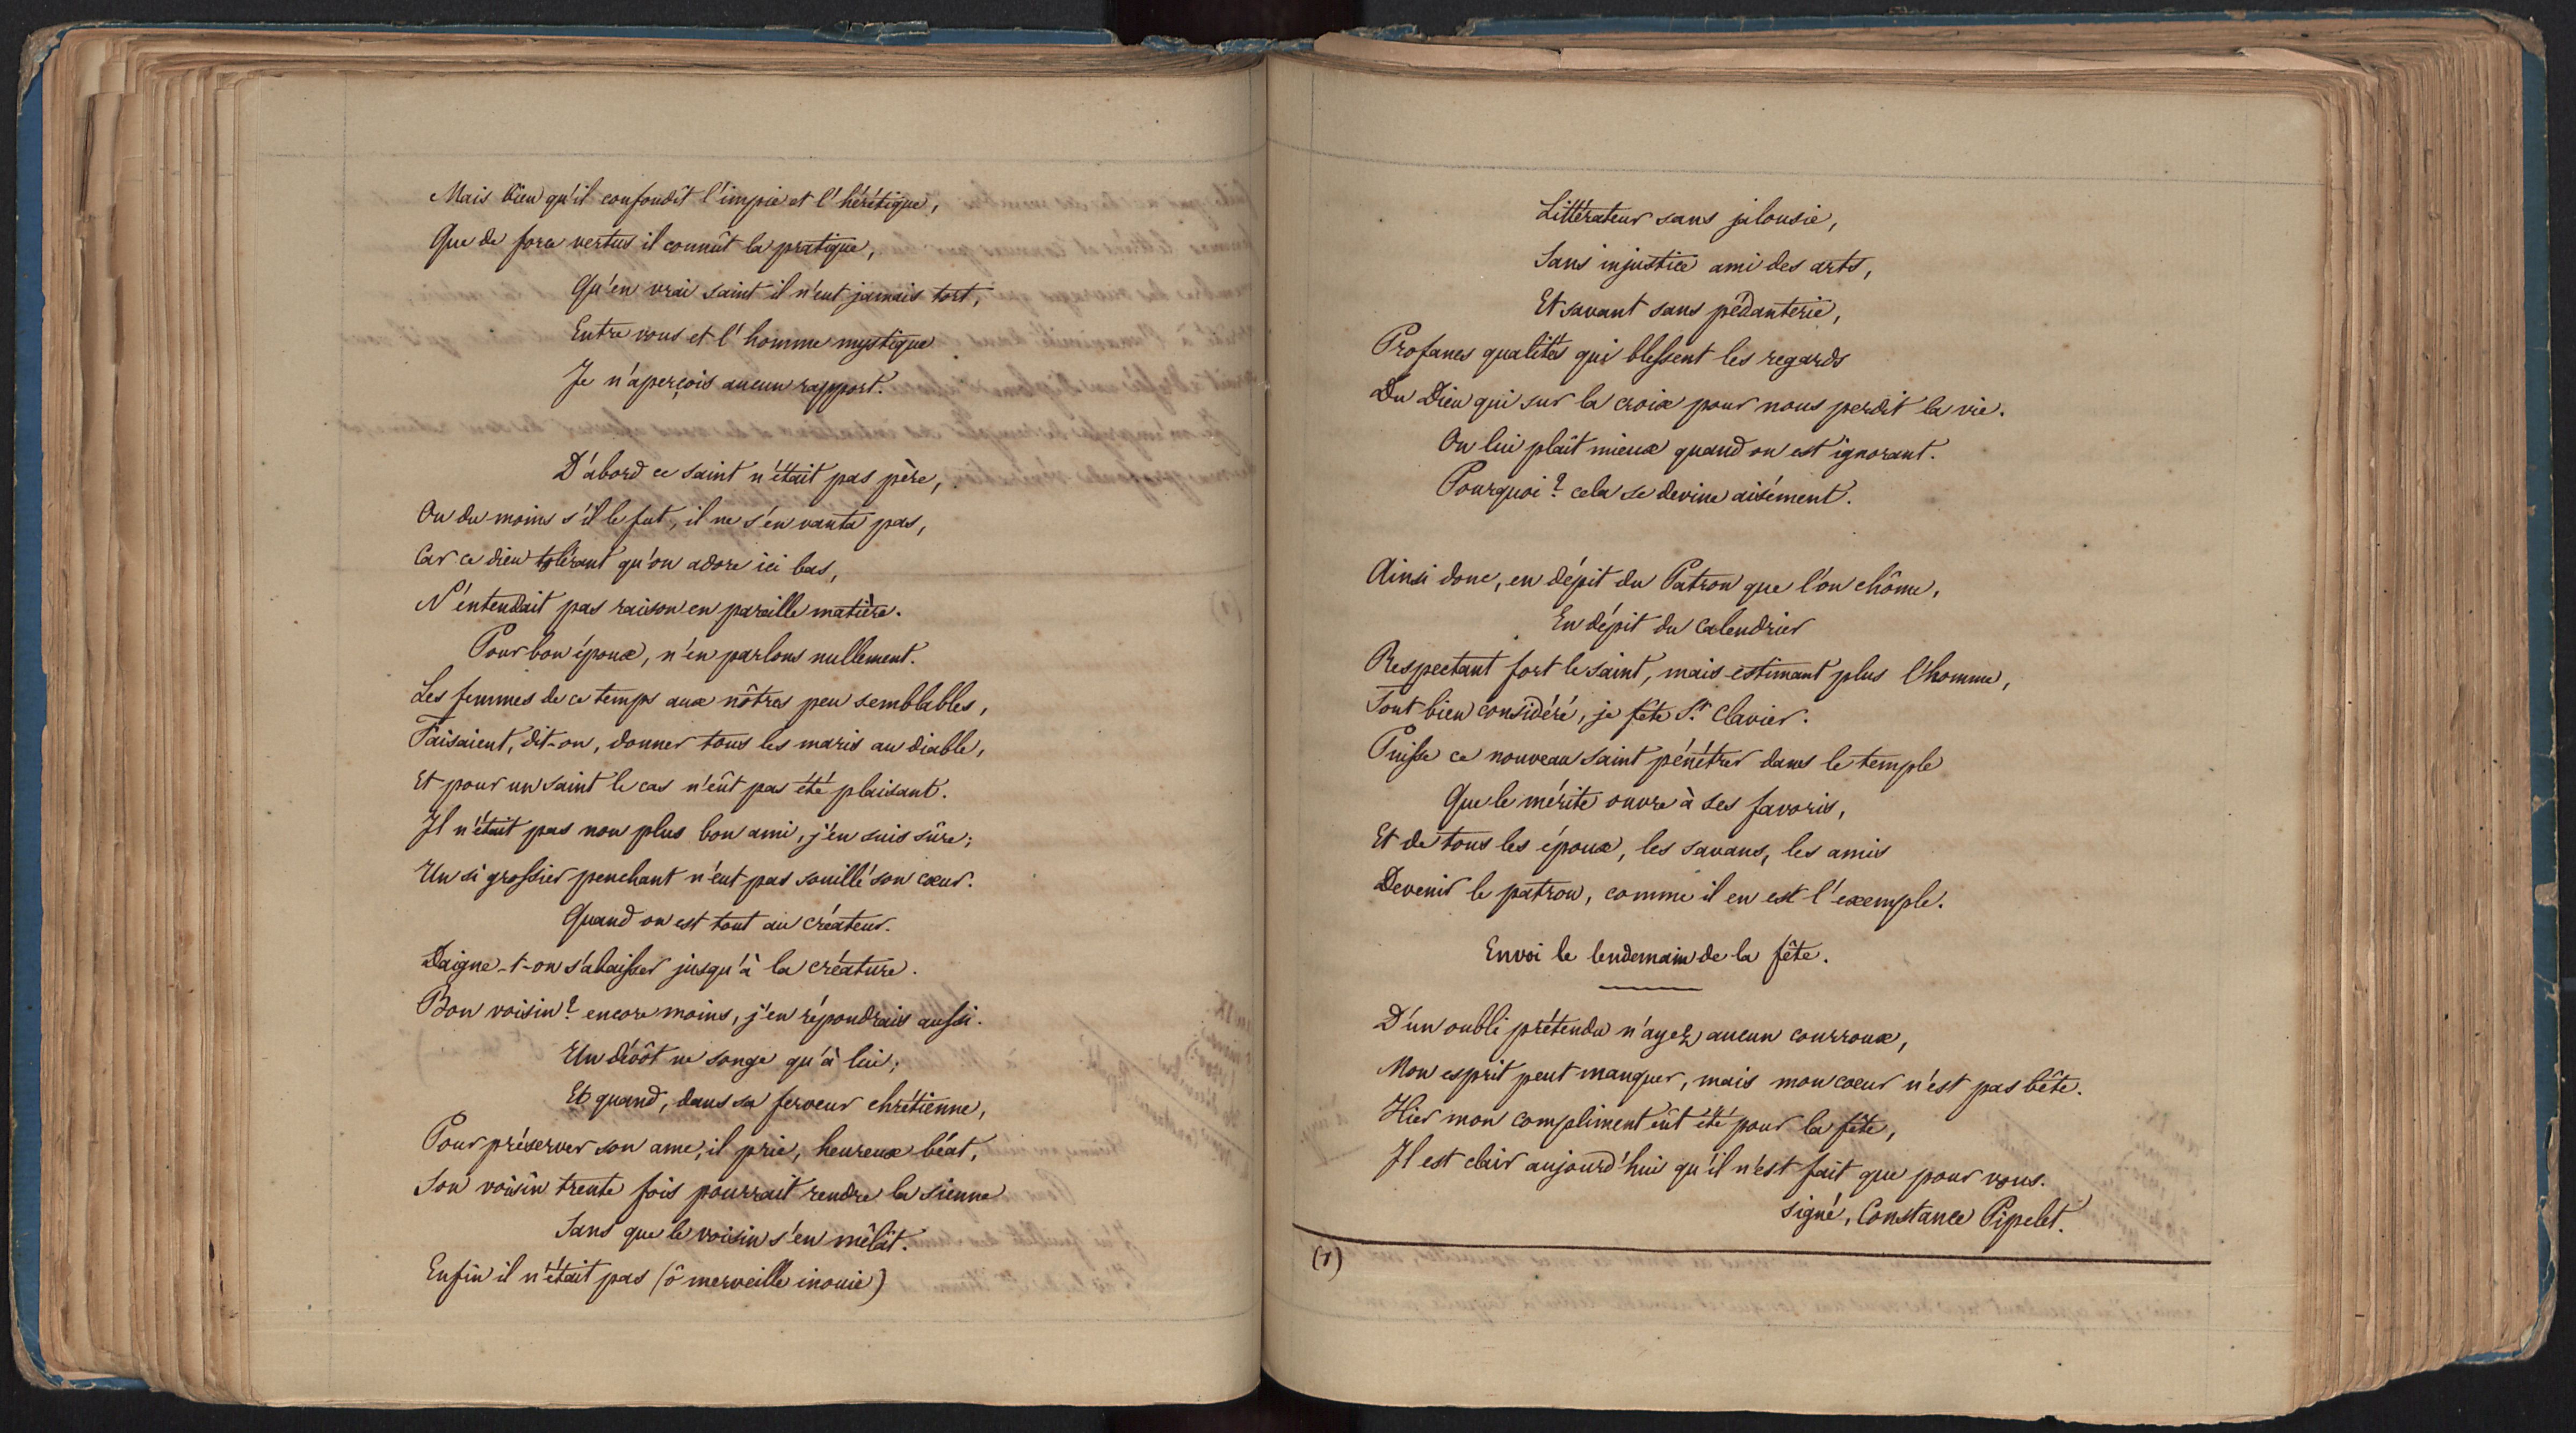 Mais bien qu'il confondît l'impie et l'hérétique,
Que de force vertus il connût la pratique,
Qu'en vrai saint il n'eut jamais tort,
Entre vous et l'homme mystique
Je n'aperçois aucun rapport.
D'abord ce saint n'était pas père,
Ou du moins s'il le fut, il ne s'en vanta pas,
Car ce dieu tolérant qu'on adore ici bas,
N'entendait pas raison en pareille matière.
Pour bon époux, n'en parlons nullement.
Les femmes de ce temps aux nôtres peu semblables,
Faisaient, dit-on, donner tous les maris au diable,
Et pour un saint le cas n'eût pas été plaisant.
Il n'était pas non plus bon ami, j'en suis sûre;
Un si grossier penchant n'eut pas souillé son cœur.
Quand on est tout au créateur.
Daigne-t-on s'abaisser jusqu'à la créature.
Bon voisin? encore moins, j'en répondrais aussi.
Un dévôt ne songe qu'à lui;
Et quand, dans sa ferveur chrétienne,
Pour préserver son ame, il prie, heureux béat,
Son voisin trente fois pourrait rendre la sienne
Sans que le voisin s'en mêlât.
Enfin il n'était pas (ô merveille inouie)
Littérateur sans jalousie,
Sans injustice ami des arts,
Et savant sans pédanterie,
Profanes qualités qui blessent les regards
Du Dieu qui sur la croix pour nous perdit la vie.
On lui plaît mieux quand on est ignorant.
Pourquoi? cela se devine aisément.
Ainsi donc, en dépit du Patron que l'on chôme,
En dépit du calendrier
Respectant fort le saint, mais estimant plus l'homme,
Tout bien considéré, je fête St. Clavier.
Puisse ce nouveau saint pénétrer dans le temple
Que le mérite ouvre à ses favoris,
Et de tous les époux, les savans, les amis
Devenir le patron, comme il en est l'exemple.
Envoi le lendemain de la fête.
D'un oubli prétendu n'ayez aucun courroux,
Mon esprit peut manquer, mais mon coeur n'est pas bête.
Hier mon compliment eût été pour la fête,
Il est clair aujourd'hui qu'il n'est fait que pour vous.
signé, Constance Pipelet.
(1)